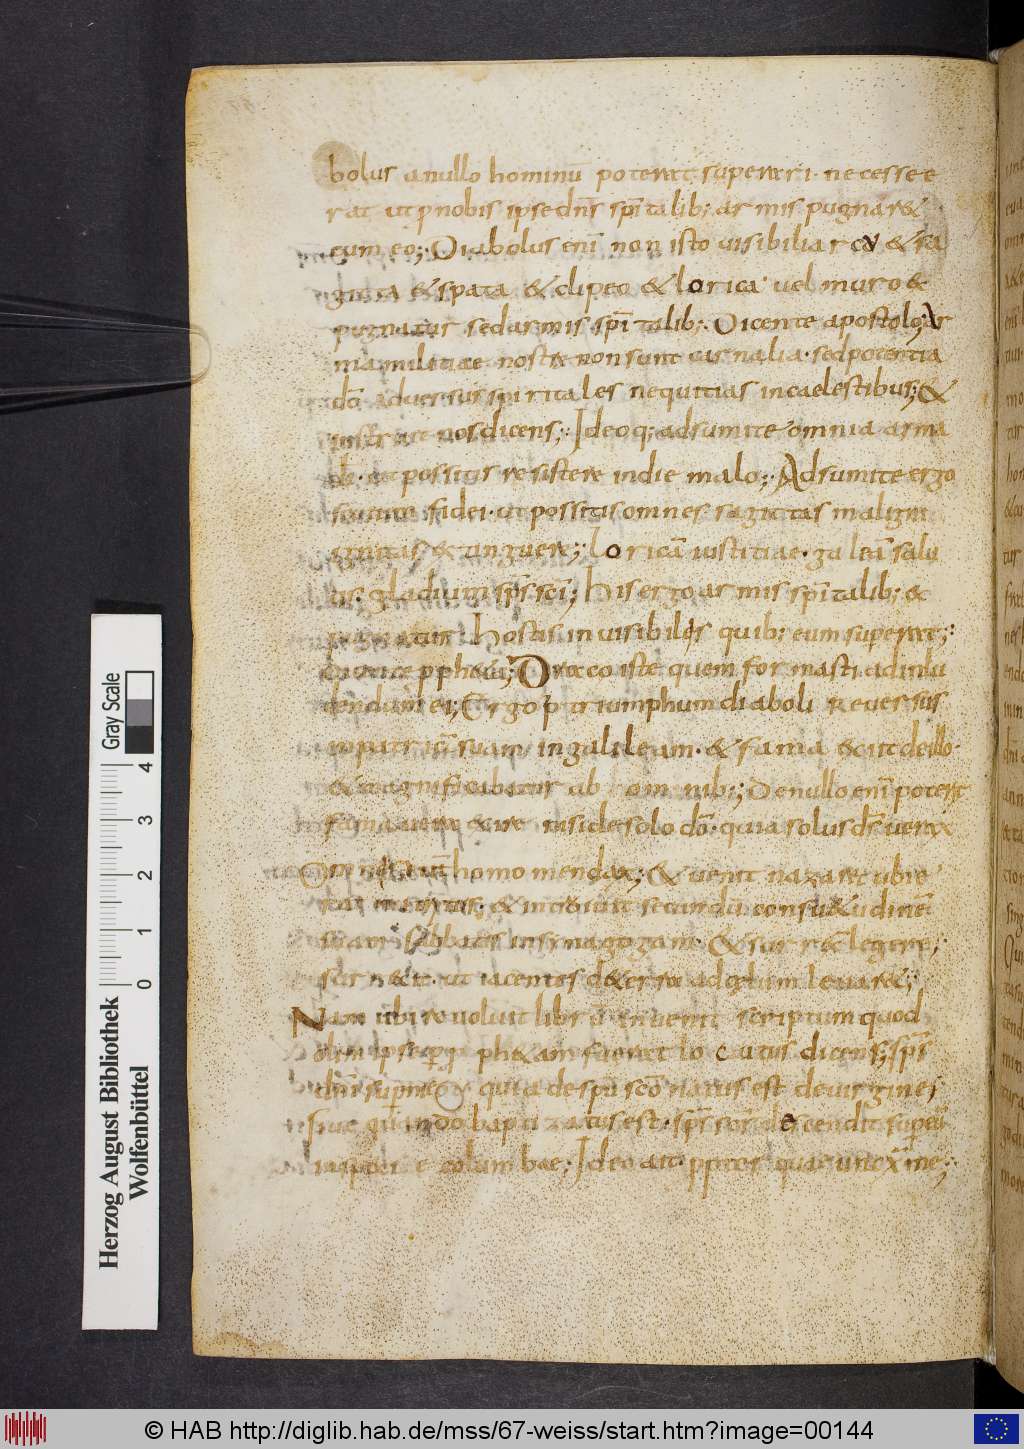 bolus a nullo hominū poterat superari. necesse e
rat ut p nobis ipse dn̄s sp̄italib; armis pugnar&
cum eo; Diabolus enī non isto uisibili arcu & sa
gitta & spata & clipeo & lorica uel muro &
pugnatur sed armis sp̄italib; Dicente apostolo; ar
ma militiae nostrae non sunt carnalia. sed potentia
dō aduersus spiritales nequitias in caelestibus; &
nos dicens; Ideoq; adsumite omnia arma
dī. ut possitis resistere in die malo; Adsumite ergo
scutum fidei. ut possitis omnes sagittas maligni
ignitas extinguere; loricā iustitiae. galeā salu
tis. gladium sp̄s sc̄i; His ergo armis sp̄italib; &
pugnatur hostis inuisibilis quib; eum superat;
dicente pph&a; Draco iste quem formasti ad inlu
dendum ei; Ergo p triumphum diaboli reuersus
in patriā suam in galileam. & fama exiit de illo.
& magnificabatur ab omnib;; De nullo enī poterat
fama uera exire nisi de solo dō. quia solus dr̄ uerax
Omnis aūt homo mendax; & uenit nazaret ubi e
rat nutritus. & intrauit secundū consu&udinē
suam sabbatis in synagogam. & surrex̄ legere;
surrexit. ut iacentes de terra ad caelum leuar&;
Nam ubi reuoluit librū inuenit scriptum quod
olim ipse p pph&am fuerat locutus dicens; sp̄s
dn̄i sup me quia de spu sc̄o natus est de uirgine;
Siue quando baptizatus est. sp̄s sc̄s descendit super eū
in specie columbae; Ideo ait. ppter quae unex̄ me;
Herzog August Bibliothek
Wolfenbüttel
Gray Scale
0 1 2 3 4
© HAB http://diglib.hab.de/mss/67-weiss/start.htm?image=00144